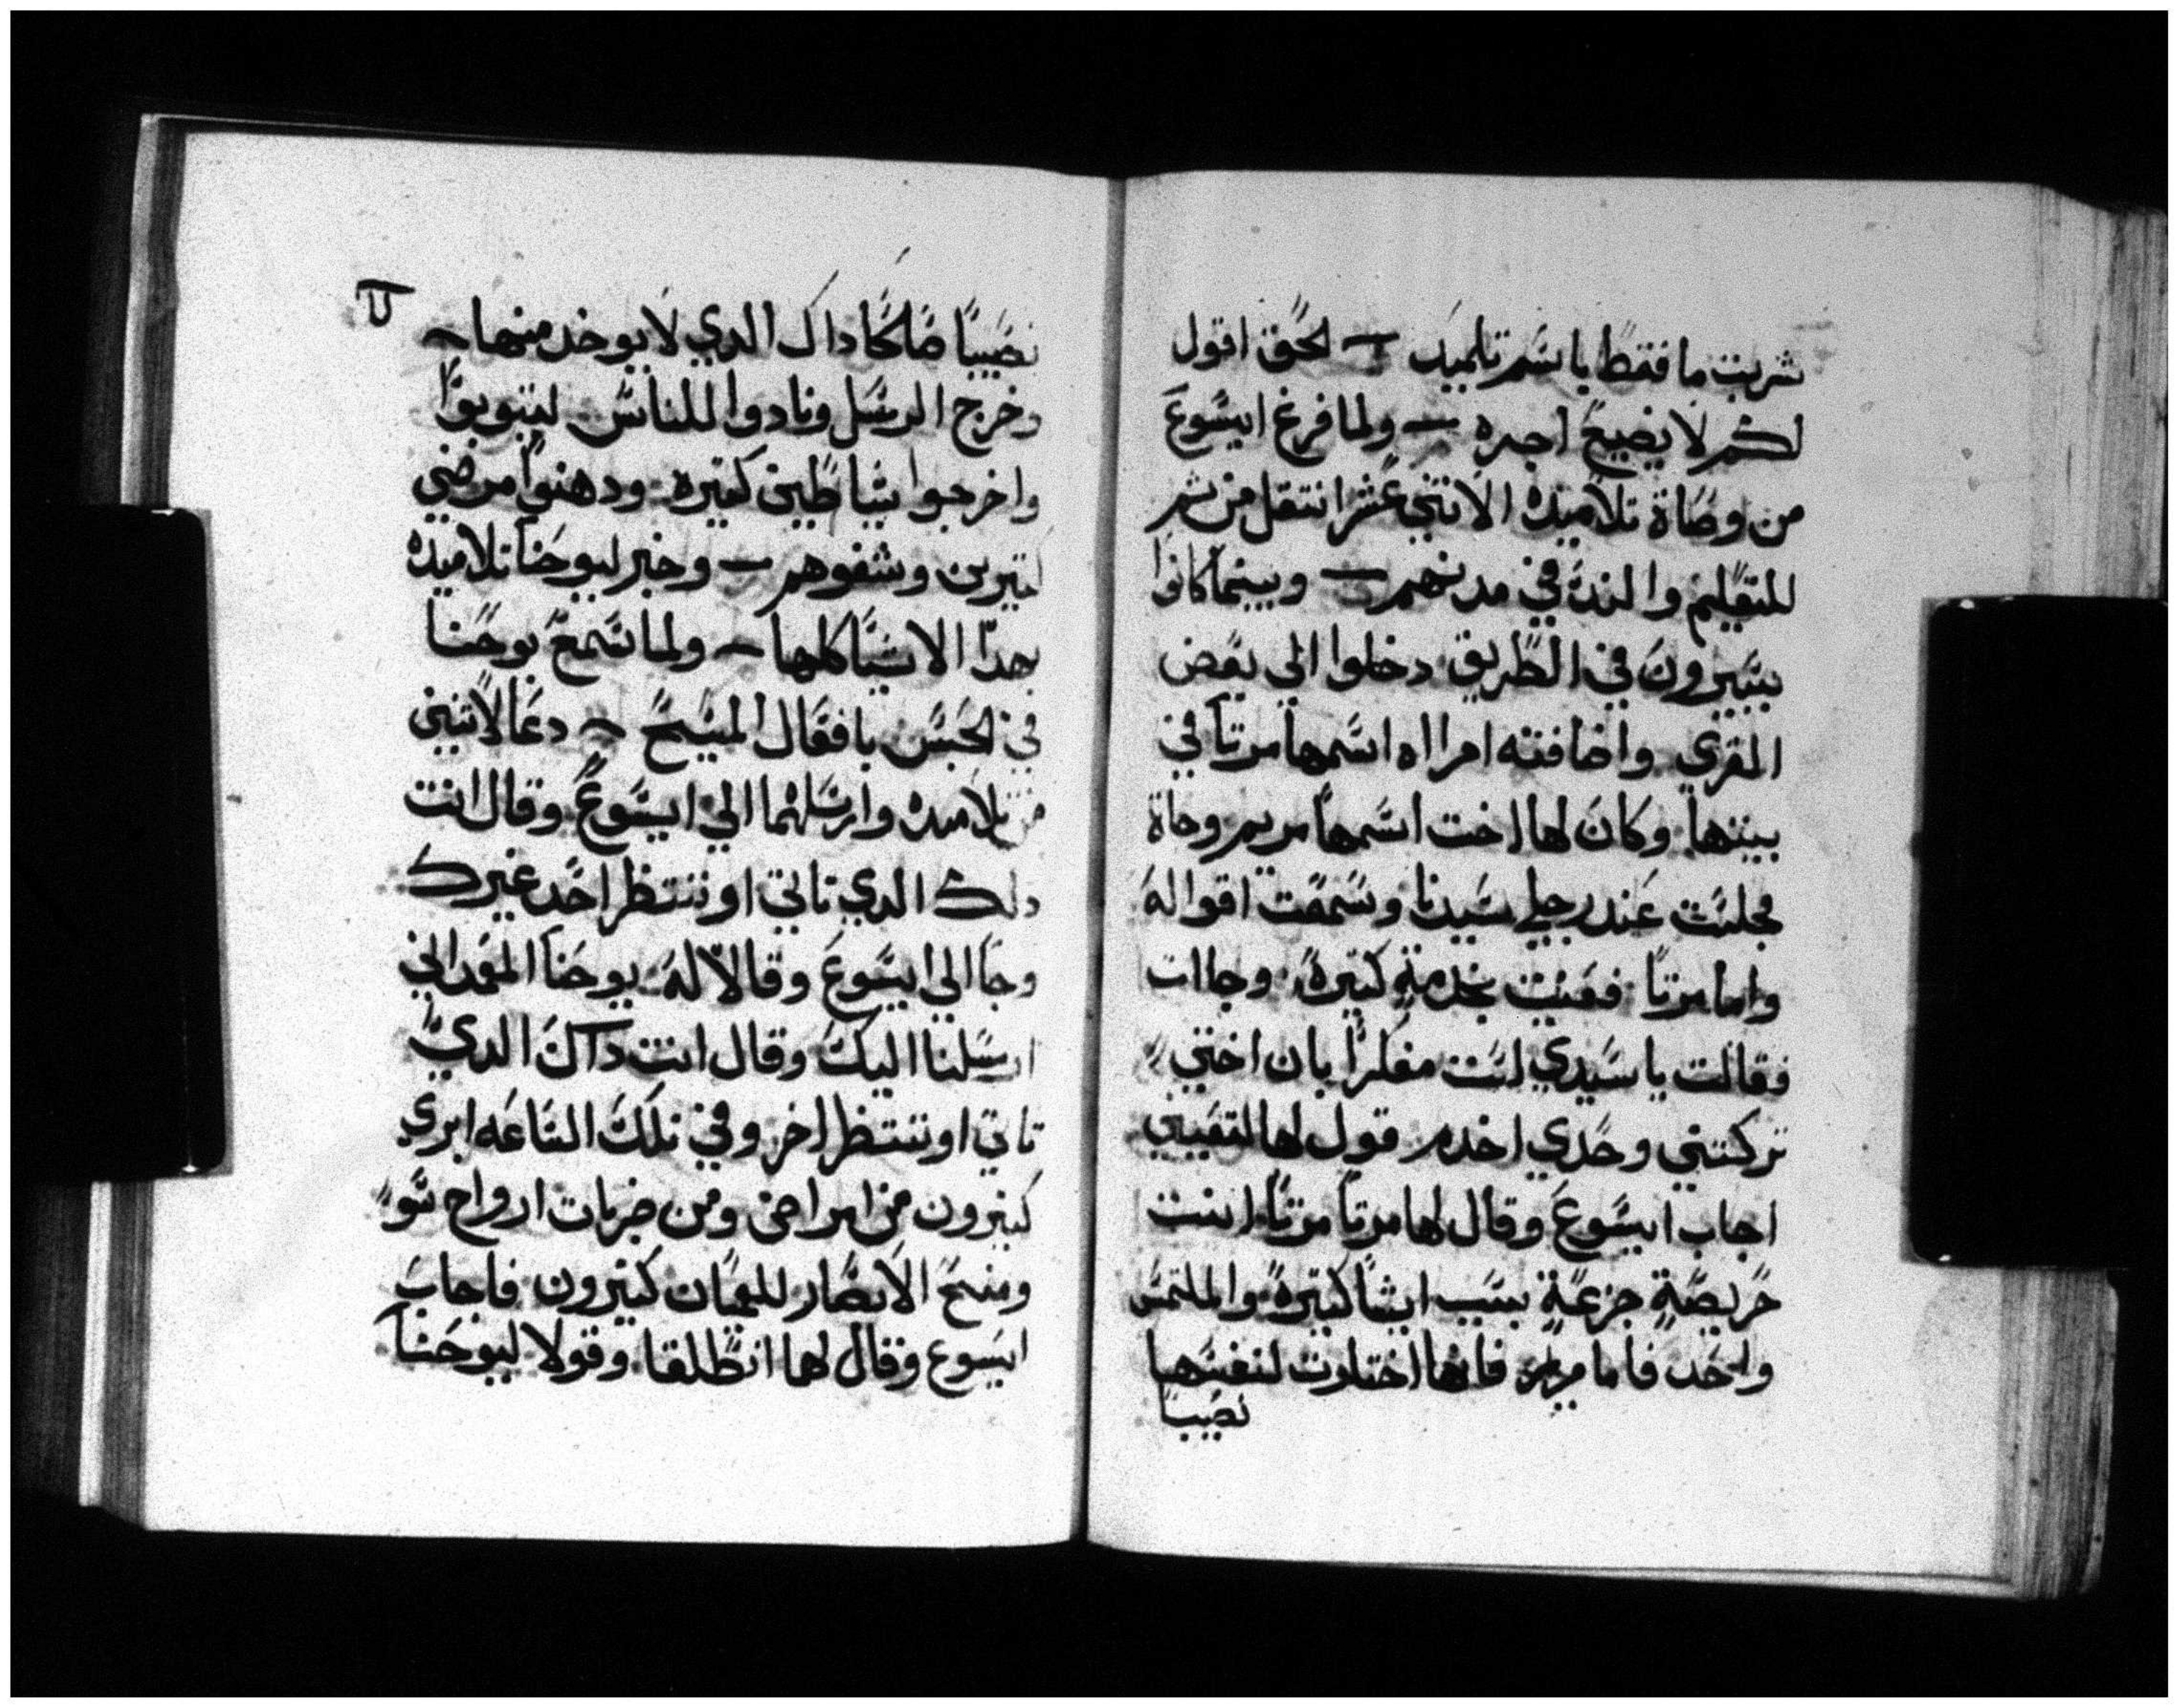 شربت ما فقط باسم تلميد ؎ الحق اقول
لكم لا يضيع اجره ؎ ولما فرغ ايسوع
من وصاة تلاميده الاتني عشر انتقل من ثم
للتعليم والندة في مدنهم ؎ وبينما كانوا
يسيرون في الطريق دخلوا الي بعض
القري واضافته امرااه اسمها مرتا في
بيتها وكان لها اخت اسمها مريم وجاة
فجلست عند رجلي سيدنا وسمعت اقواله
واما مرتا فعنت بخدمة كتيرة وجاات
فقالت يا سيدي لست مفكرا بان اختي
تركتني وحدي اخدم قول لها لتعينني
اجاب ايسوع وقال لها مرتا مرتا انت
حريصة جزعة بسبب اشيا كتيرة والملتمس
واحد فاما مريم فانها اختارت لنفسها
نصيبا
نصيبا صالحا داك الدي لا يوخد منها ؎
وخرج الرسل ونادوا للناس ليتوبوا
واخرجوا شياطين كتيره ودهنوا مرضي
كتيرين وشفوهم ؎ وخبر ليوحنا تلاميده
بهدا الاشيا كلها ؎ ولما سمع يوحنا
في الحبس بافعال المسيح ؎ دعا لاتنين
من تلاميده وارسلهما الي ايسوع وقال انت
دلك الدي تاتي او ننتظر احد غيرك
وجا الي ايسوع وقالا له يوحنا المعمداني
ارسلنا اليك وقال انت داك الدي
تاتي او ننتظر اخر وفي تلك الساعه ابري
كتيرون من امراض ومن ضربات ارواح سو
ومنح الابصار للعميان كتيرون فاجاب
ايسوع وقال لهما انطلقا وقولا ليوحنا